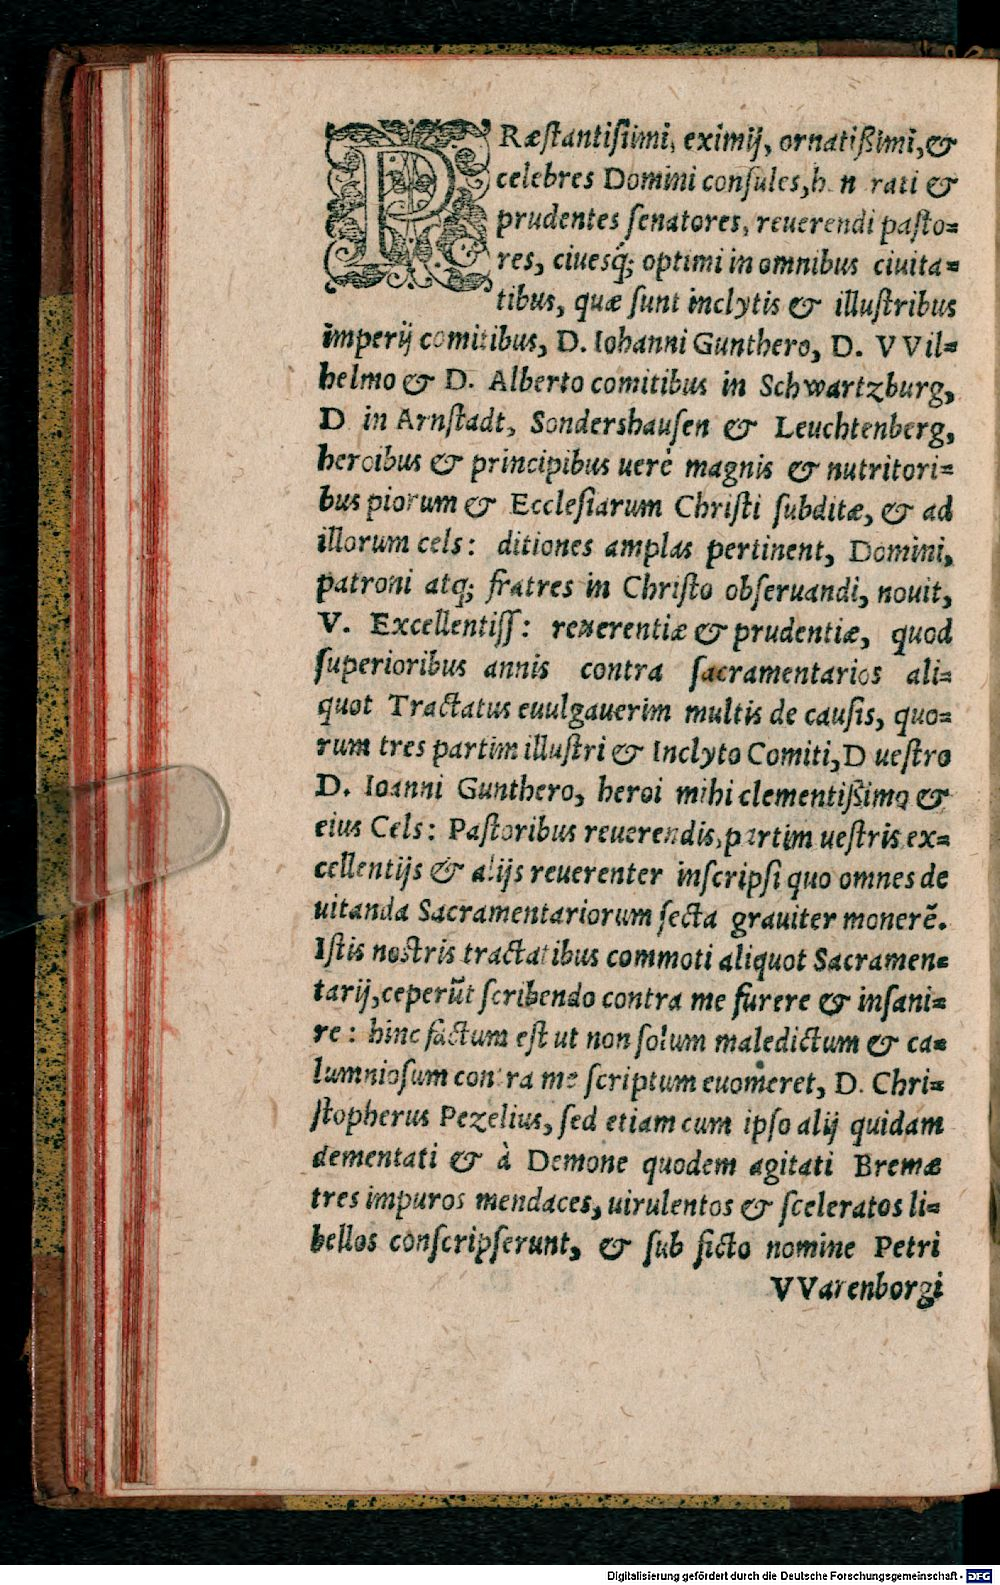 PRæſtantiſsimi, eximij, ornatiſsimi, &
celebres Domini conſules, h n rati &
prudentes ſenatores, reuerendi paſto=
res, ciuesq́; optimi in omnibus ciuita=
tibus, quæ ſunt inclytis & illuſtribus
imperij comitibus, D. Iohanni Gunthero, D. VVil=
helmo & D. Alberto comitibus in Schwartzburg,
D in Arnſtadt, Sondershauſen & Leuchtenberg,
heroibus & principibus uerè magnis & nutritori=
bus piorum & Eccleſiarum Chriſti ſubditæ, & ad
illorum cels: ditiones amplas pertinent, Domini,
patroni atq; fratres in Chriſto obſeruandi, nouit,
V. Excellentiſſ: reuerentiæ & prudentiæ, quod
ſuperioribus annis contra ſacramentarios ali=
quot Tractatus euulgauerim multis de cauſis, quo=
rum tres partim illuſtri & Inclyto Comiti, D ueſtro
D. Ioanni Gunthero, heroi mihi clementißimo &
eius Cels: Paſtoribus reuerendis, partim ueſtris ex=
cellentijs & alijs reuerenter inſcripſi quo omnes de
uitanda Sacramentariorum ſecta grauiter monerẽ.
Iſtis noſtris tractatibus commoti aliquot Sacramen=
tarij, ceperũt ſcribendo contra me furere & inſani=
re: hinc factum eſt ut non ſolum maledictum & ca=
lumniosum contra me ſcriptum euomeret, D. Chri=
ſtopherus Pezelius, ſed etiam cum ipſo alij quidam
dementati & à Demone quodem agitati Bremæ
tres impuros mendaces, uirulentos & ſceleratos li=
bellos conſcripſerunt, & ſub ficto nomine Petri
VVarenborgi
Digitalisierung gefördert durch die Deutsche Forschungsgemeinschaft - DFG